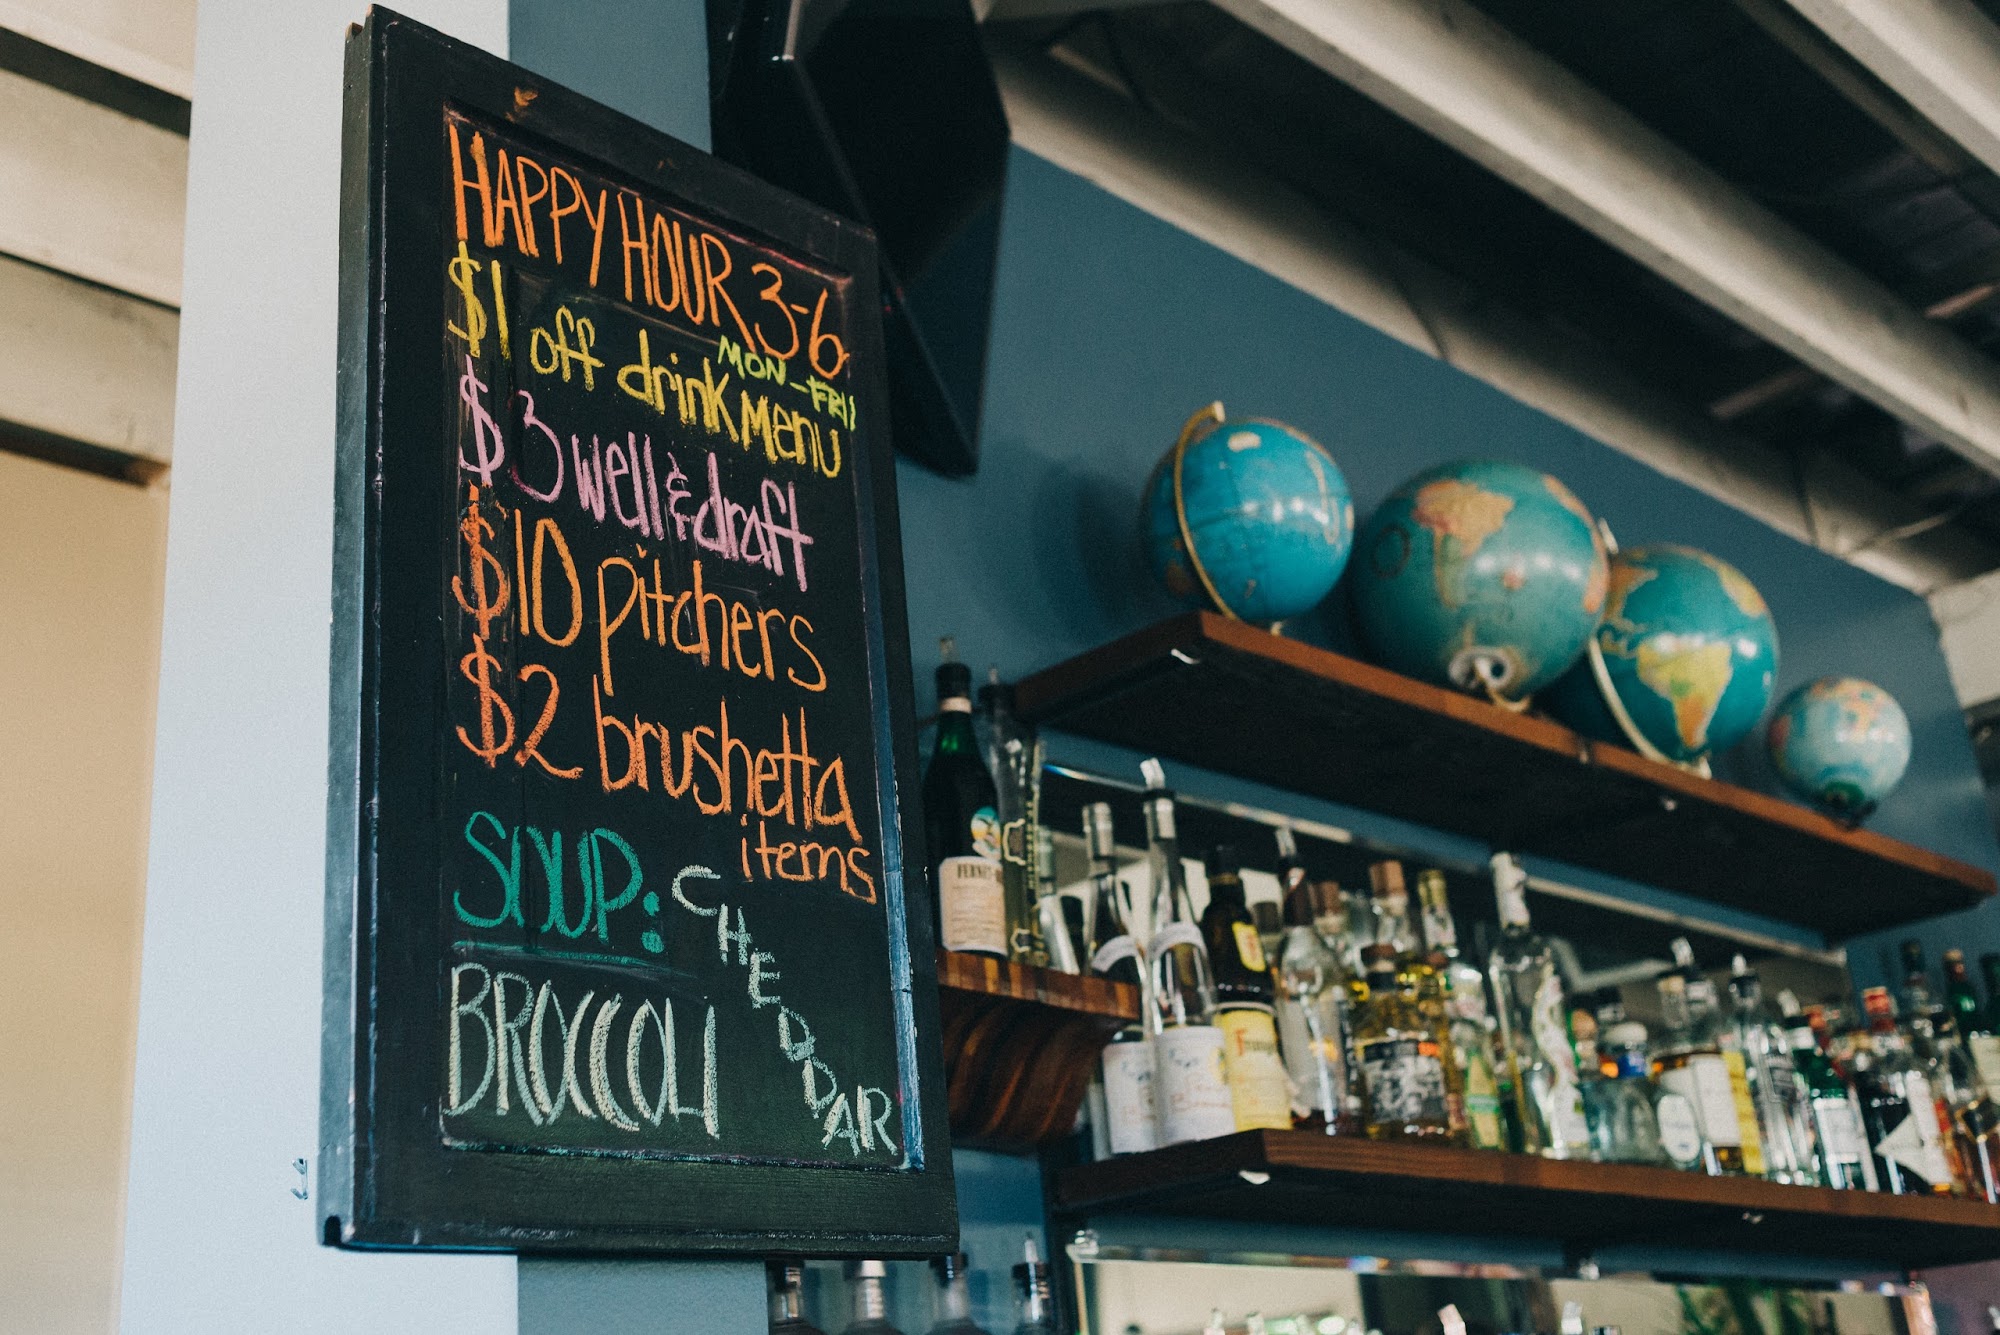 HAPPY HOUR 3-6
MON-FRI
$1 off drink Menu
$3 well & draft
$10 pitchers
$2 brushetta
items
SOUP: CHEDDAR
BROCCOLI